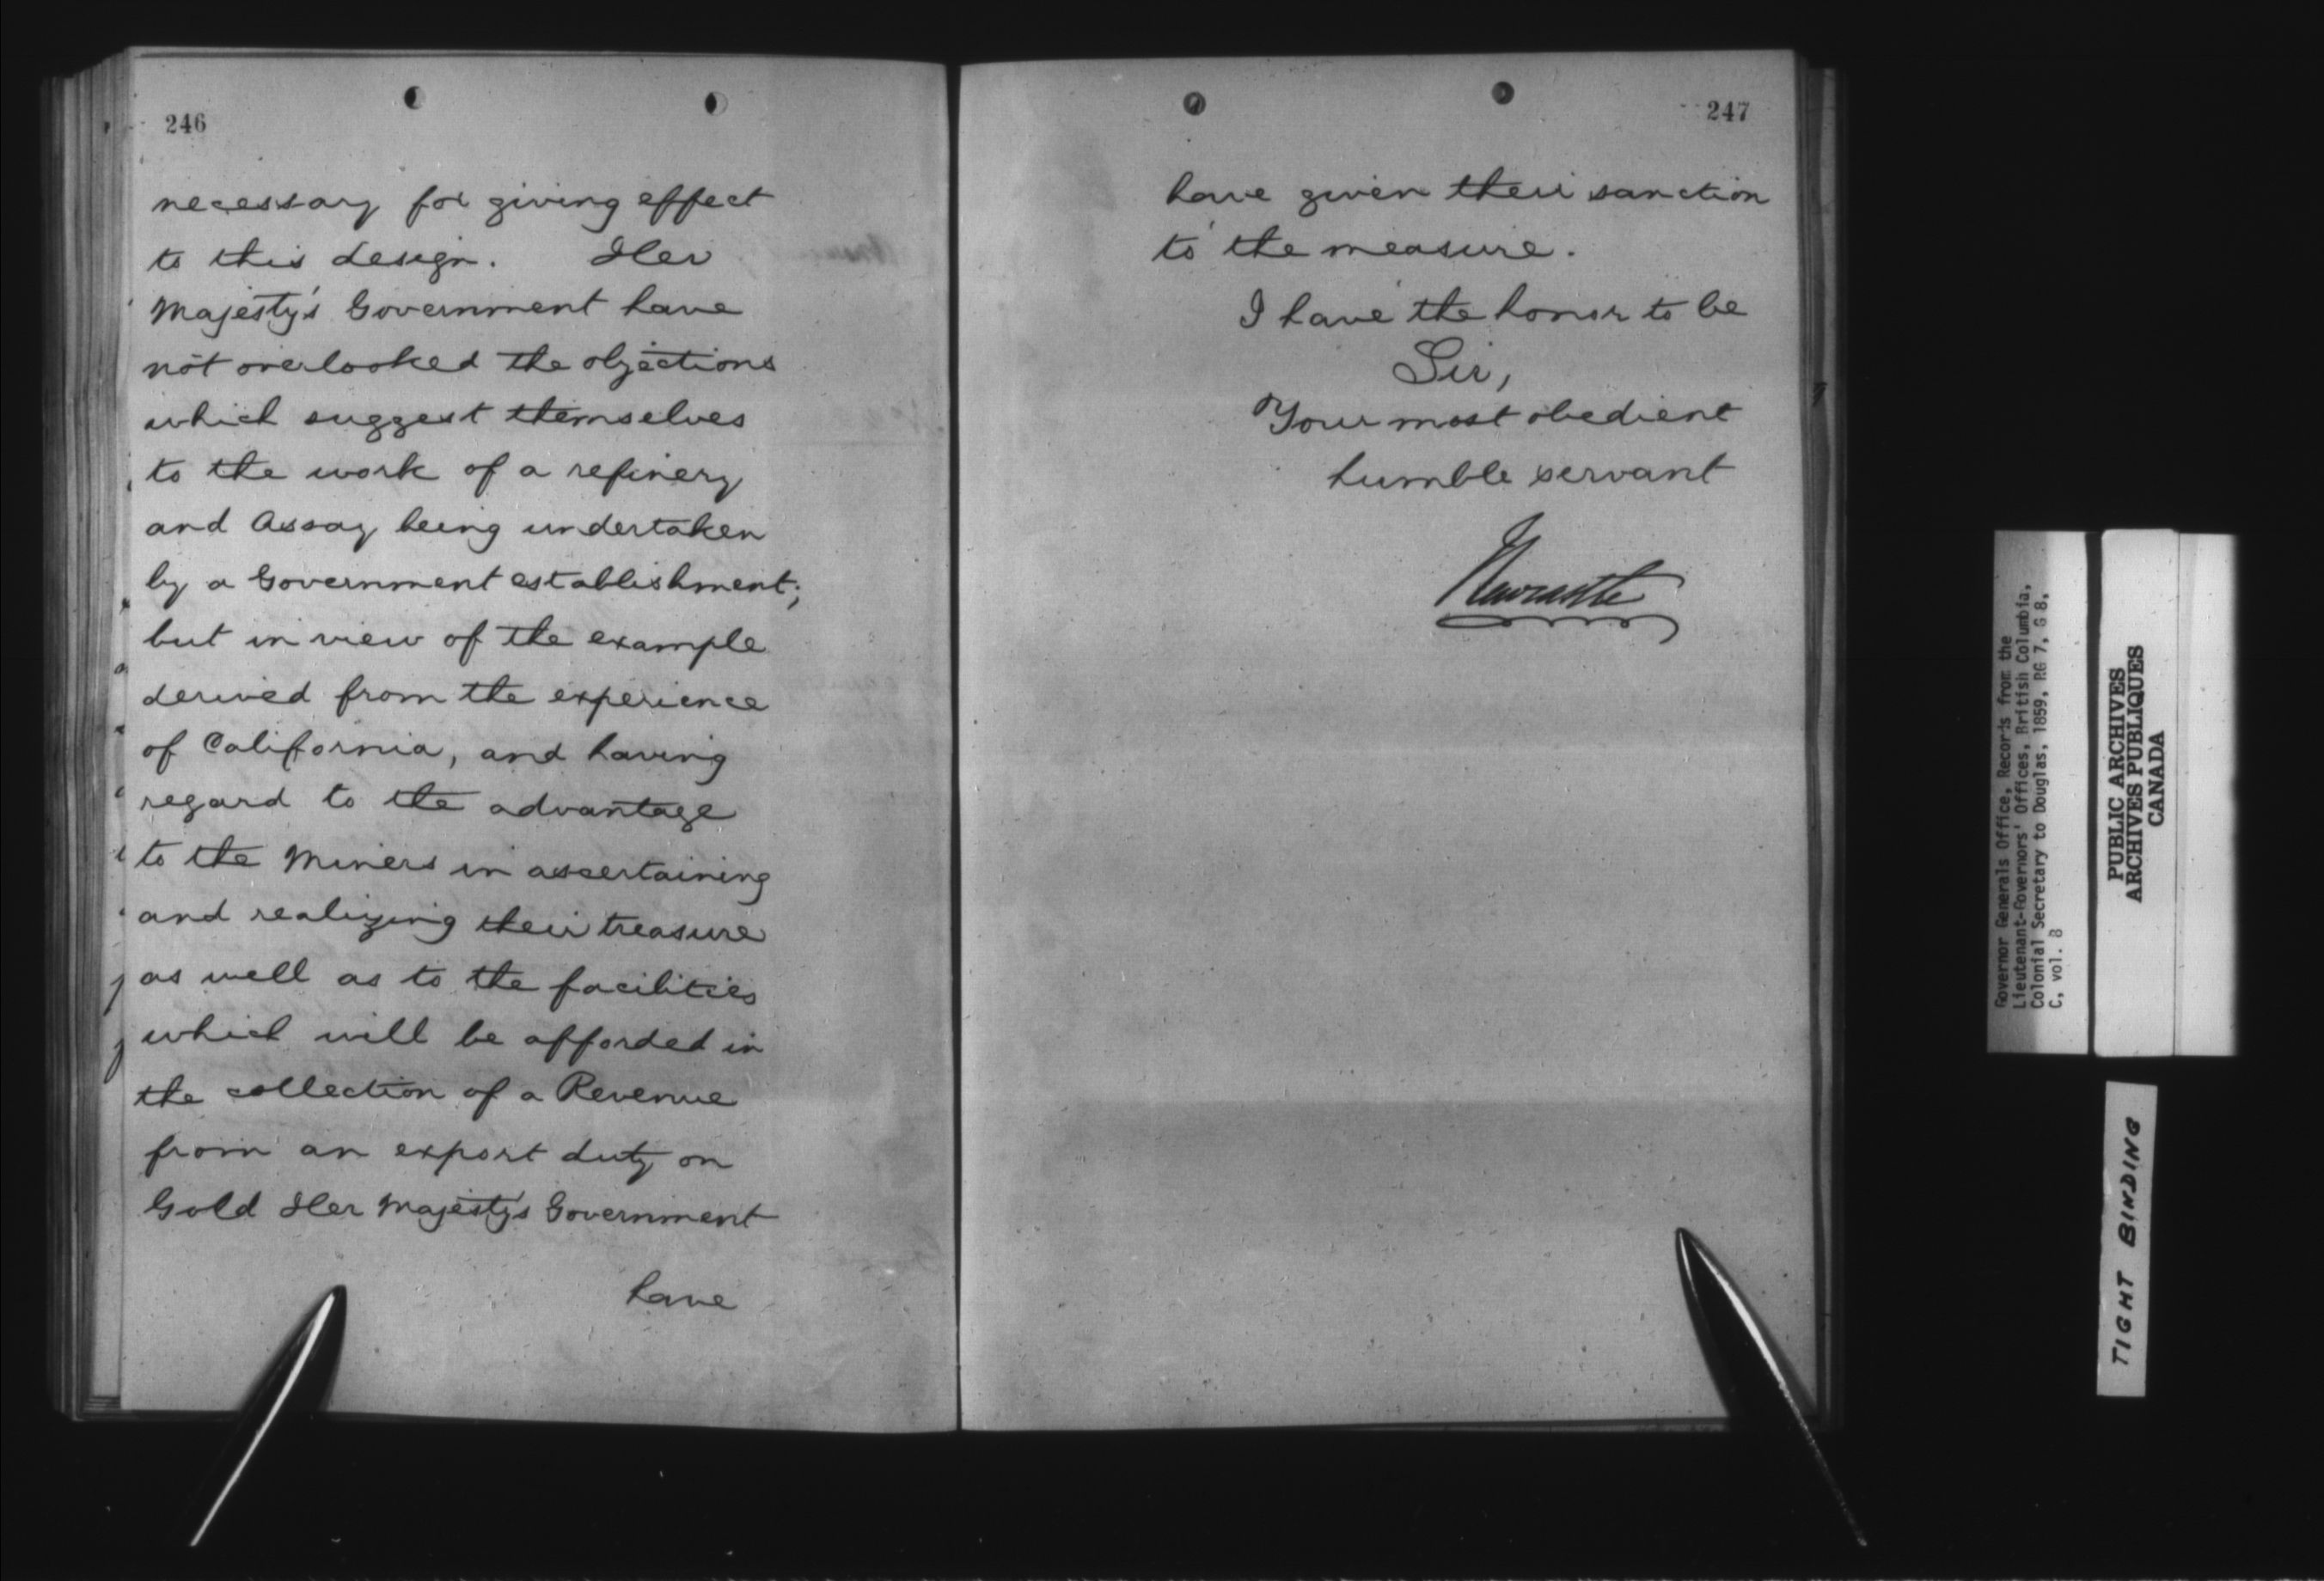 246
necessary for giving effect
to this design. Her
Majesty's Government have
not overlooked the objections
which suggest themselves
to the work of a refinery
and Assay being undertaken
by a Government establishment;
but in view of the example
derived from the experience
of California, and having
regard to the advantage
to the Miners in ascertaining
and realizing their treasure
as well as to the facilities
which will be afforded in
the collection of a Revenue
from an export duty on
Gold Her Majesty's Government
have
247
have given their sanction
to the measure.
I have the honor to be
Sir,
Your most obedient
humble servant
Newcastle
Governor Generals Office, Records from the
Lieutenant-Governors' Offices, British Columbia,
Colonial Secretary to Douglas, 1859, RG 7, G 8,
C, vol. 8
PUBLIC ARCHIVES
ARCHIVES PUBLIQUES
CANADA
TIGHT BINDING